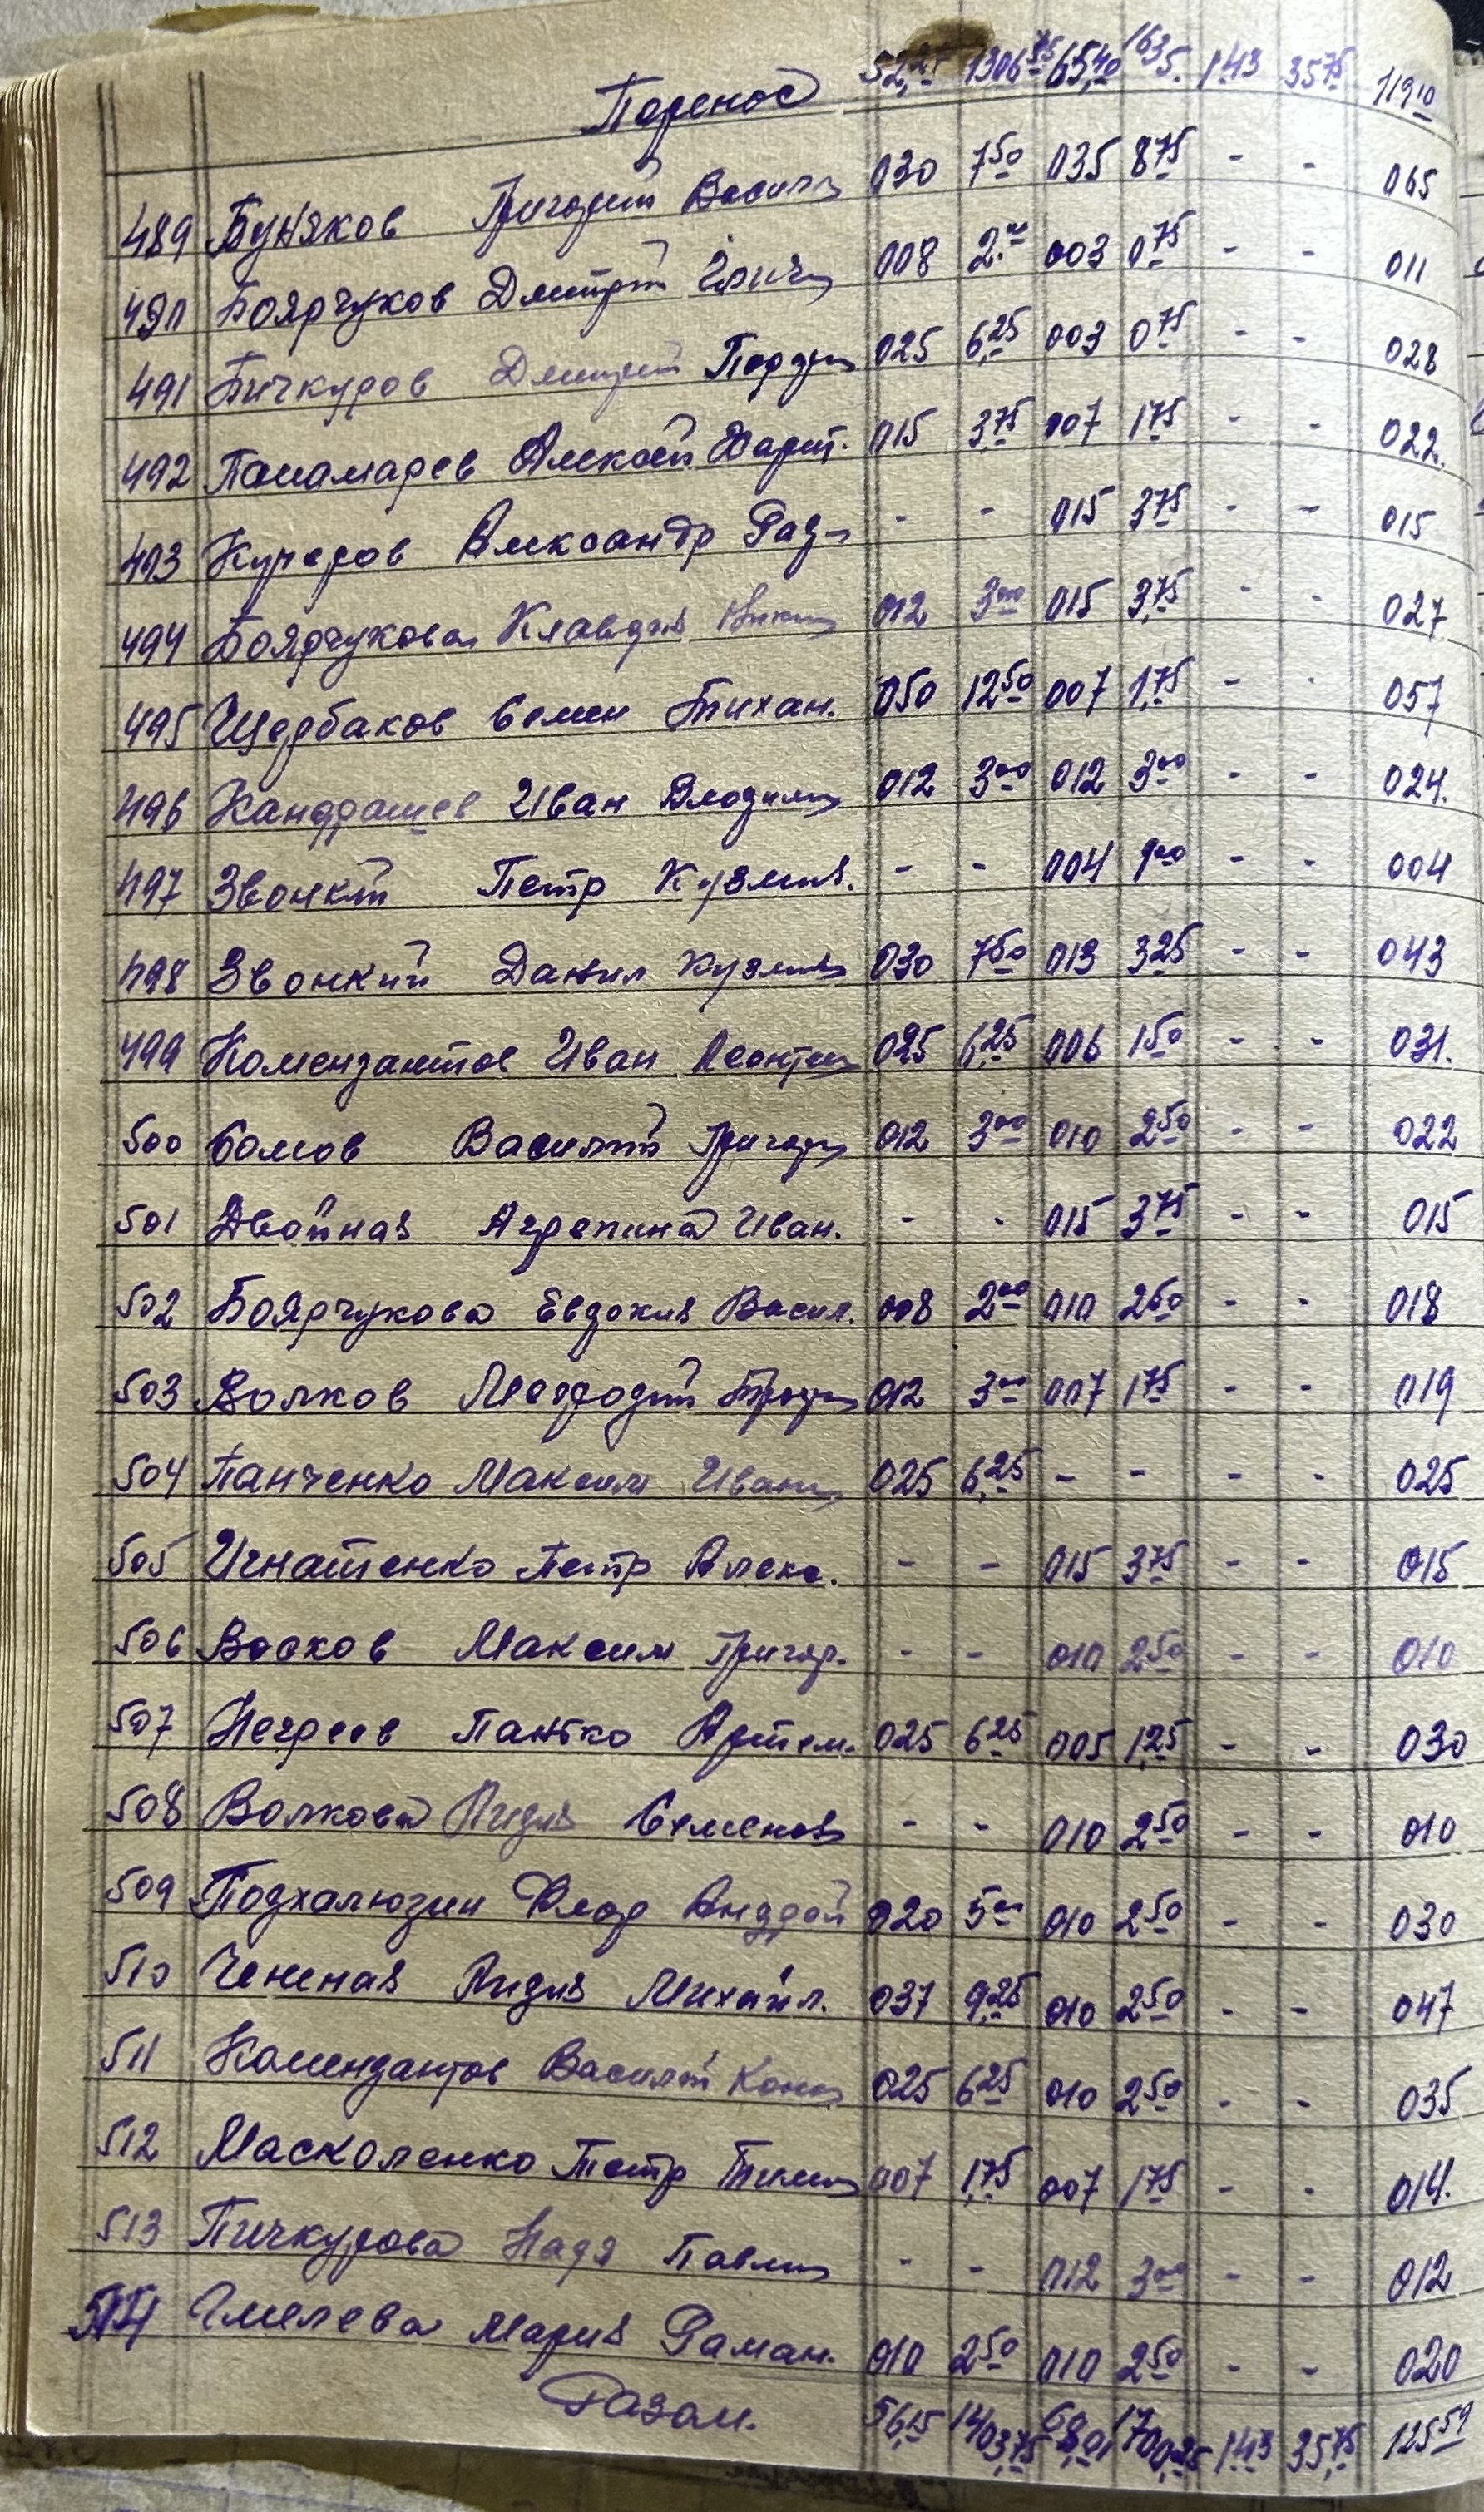 Перенос 52,25 1306 25 65,40 1635. 143 35 75 119 10
489 Буняков Григорий Васил 030 7 50 035 8 75 - - 065
490 Боярчуков Дмитрий 008 2.00 003 0 75 - - 011
491 Бичкуров Дмитрий 025 6,25 003 0 75 - - 028
492 Понамарев Алексей Харит. 015 3,75 007 1 75 - - 022.
493 Александр - - 015 3 75 - - 015
494 Боярчукова Клавдия 012 3 00 015 3,75 - - 027
495 Щербаков Семен Тихан. 050 12 50 007 1,75 - - 057
496 Кандрашев Иван Владим 012 3 00 012 3 00 - - 024.
497 Звонкий Петр Кузмич. - - 004 1 00 - - 004
498 Звонкий Данил Кузмич 030 7 50 013 3 25 - - 043
499 Комендантов Иван Леонт 025 6,25 006 1 50 - - 031.
500 Сомов Василий Григор 012 3 00 010 2 50 - - 022
501 Двойная Агрепина Иван. - - 015 3 75 - - 015
502 Боярчукова Евдокия Васил. 008 2 00 010 2 50 - - 018
503 Волков Мефодий Троф 012 3 00 007 1 75 - - 019
504 Панченко Максим Иван 025 6,25 - - - - 025
505 Игнатенко Петр Алекс. - - 015 3 75 - - 015
506 Восков Максим Григор. - - 010 2 50 - - 010
507 Негреев Панько Артем. 025 6 25 005 1,25 - - 030
508 Волкова Лидия Семенов - - 010 2 50 - - 010
509 Подхалюзин Федор Андрей 020 5 00 010 2 50 - - 030
510 Лидия Михайл. 037 9,25 010 2 50 - - 047
511 Комендантов Василий Конс 025 6 25 010 2 50 - - 035
512 Масколенко Петр Тим 007 1,75 007 1 75 - - 014.
513 Пичкурова Надя Павл - - 012 3 00 - - 012
514 Мария Раман. 010 2 50 010 2 50 - - 020
Разом. 56,15 1403,75 68,01 1700,25 143 35,75 125 59